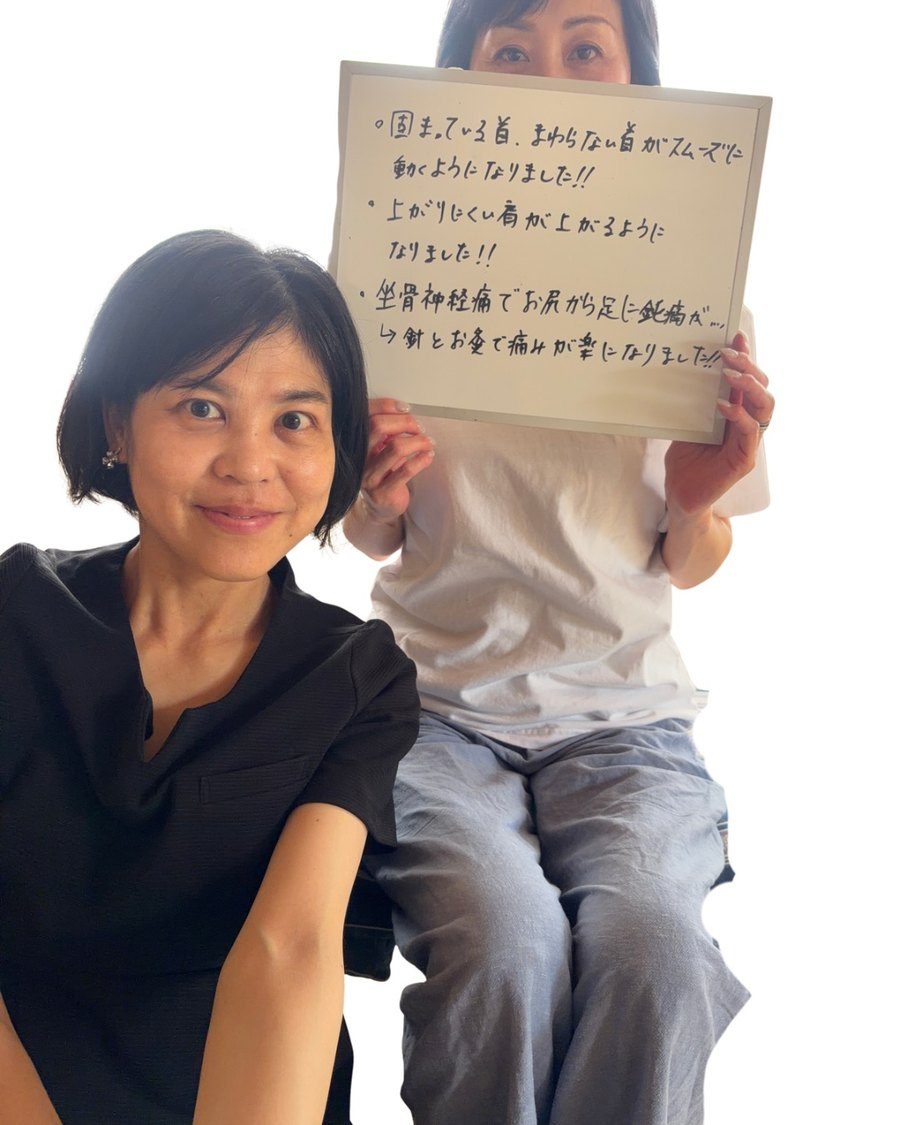 • 固まっている首、まわらない首がスムーズに
動くようになりました!!
• 上がりにくい肩が上がるように
なりました!!
• 坐骨神経痛でお尻から足に鈍痛が...
↳ 針とお灸で痛みが楽になりました!!